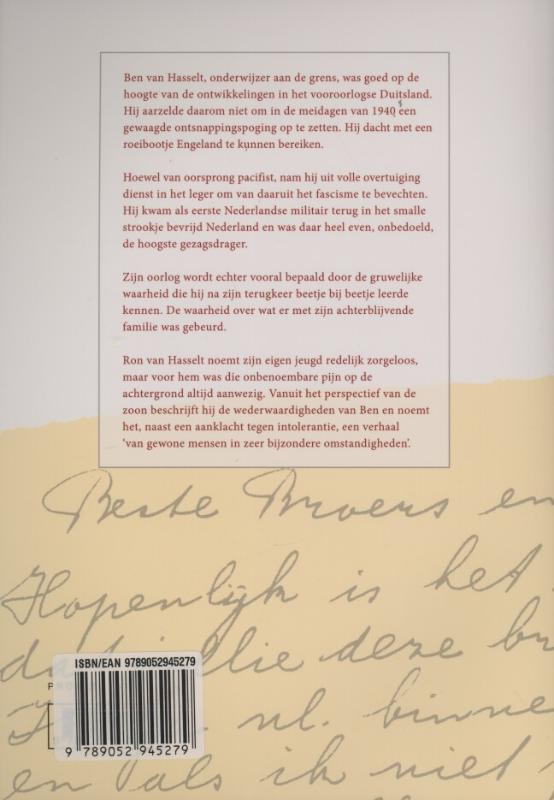 Ben van Hasselt, onderwijzer aan de grens, was goed op de
hoogte van de ontwikkelingen in het vooroorlogse Duitsland.
Hij aarzelde daarom niet om in de meidagen van 1940 een
gewaagde ontsnappingspoging op te zetten. Hij dacht met een
roeibootje Engeland te kunnen bereiken.
Hoewel van oorsprong pacifist, nam hij uit volle overtuiging
dienst in het leger om van daaruit het fascisme te bevechten.
Hij kwam als eerste Nederlandse militair terug in het smalle
strookje bevrijd Nederland en was daar heel even, onbedoeld,
de hoogste gezagsdrager.
Zijn oorlog wordt echter vooral bepaald door de gruwelijke
waarheid die hij na zijn terugkeer beetje bij beetje leerde
kennen. De waarheid over wat er met zijn achterblijvende
familie was gebeurd.
Ron van Hasselt noemt zijn eigen jeugd redelijk zorgeloos,
maar voor hem was die onbenoembare pijn op de
achtergrond altijd aanwezig. Vanuit het perspectief van de
zoon beschrijft hij de wederwaardigheden van Ben en noemt
het, naast een aanklacht tegen intolerantie, een verhaal
‘van gewone mensen in zeer bijzondere omstandigheden’.
Beste Broers en
Hopenlijk is het
deze
nl. binne
en als ik niet
ISBN/EAN 9789052945279
9 789052 945279